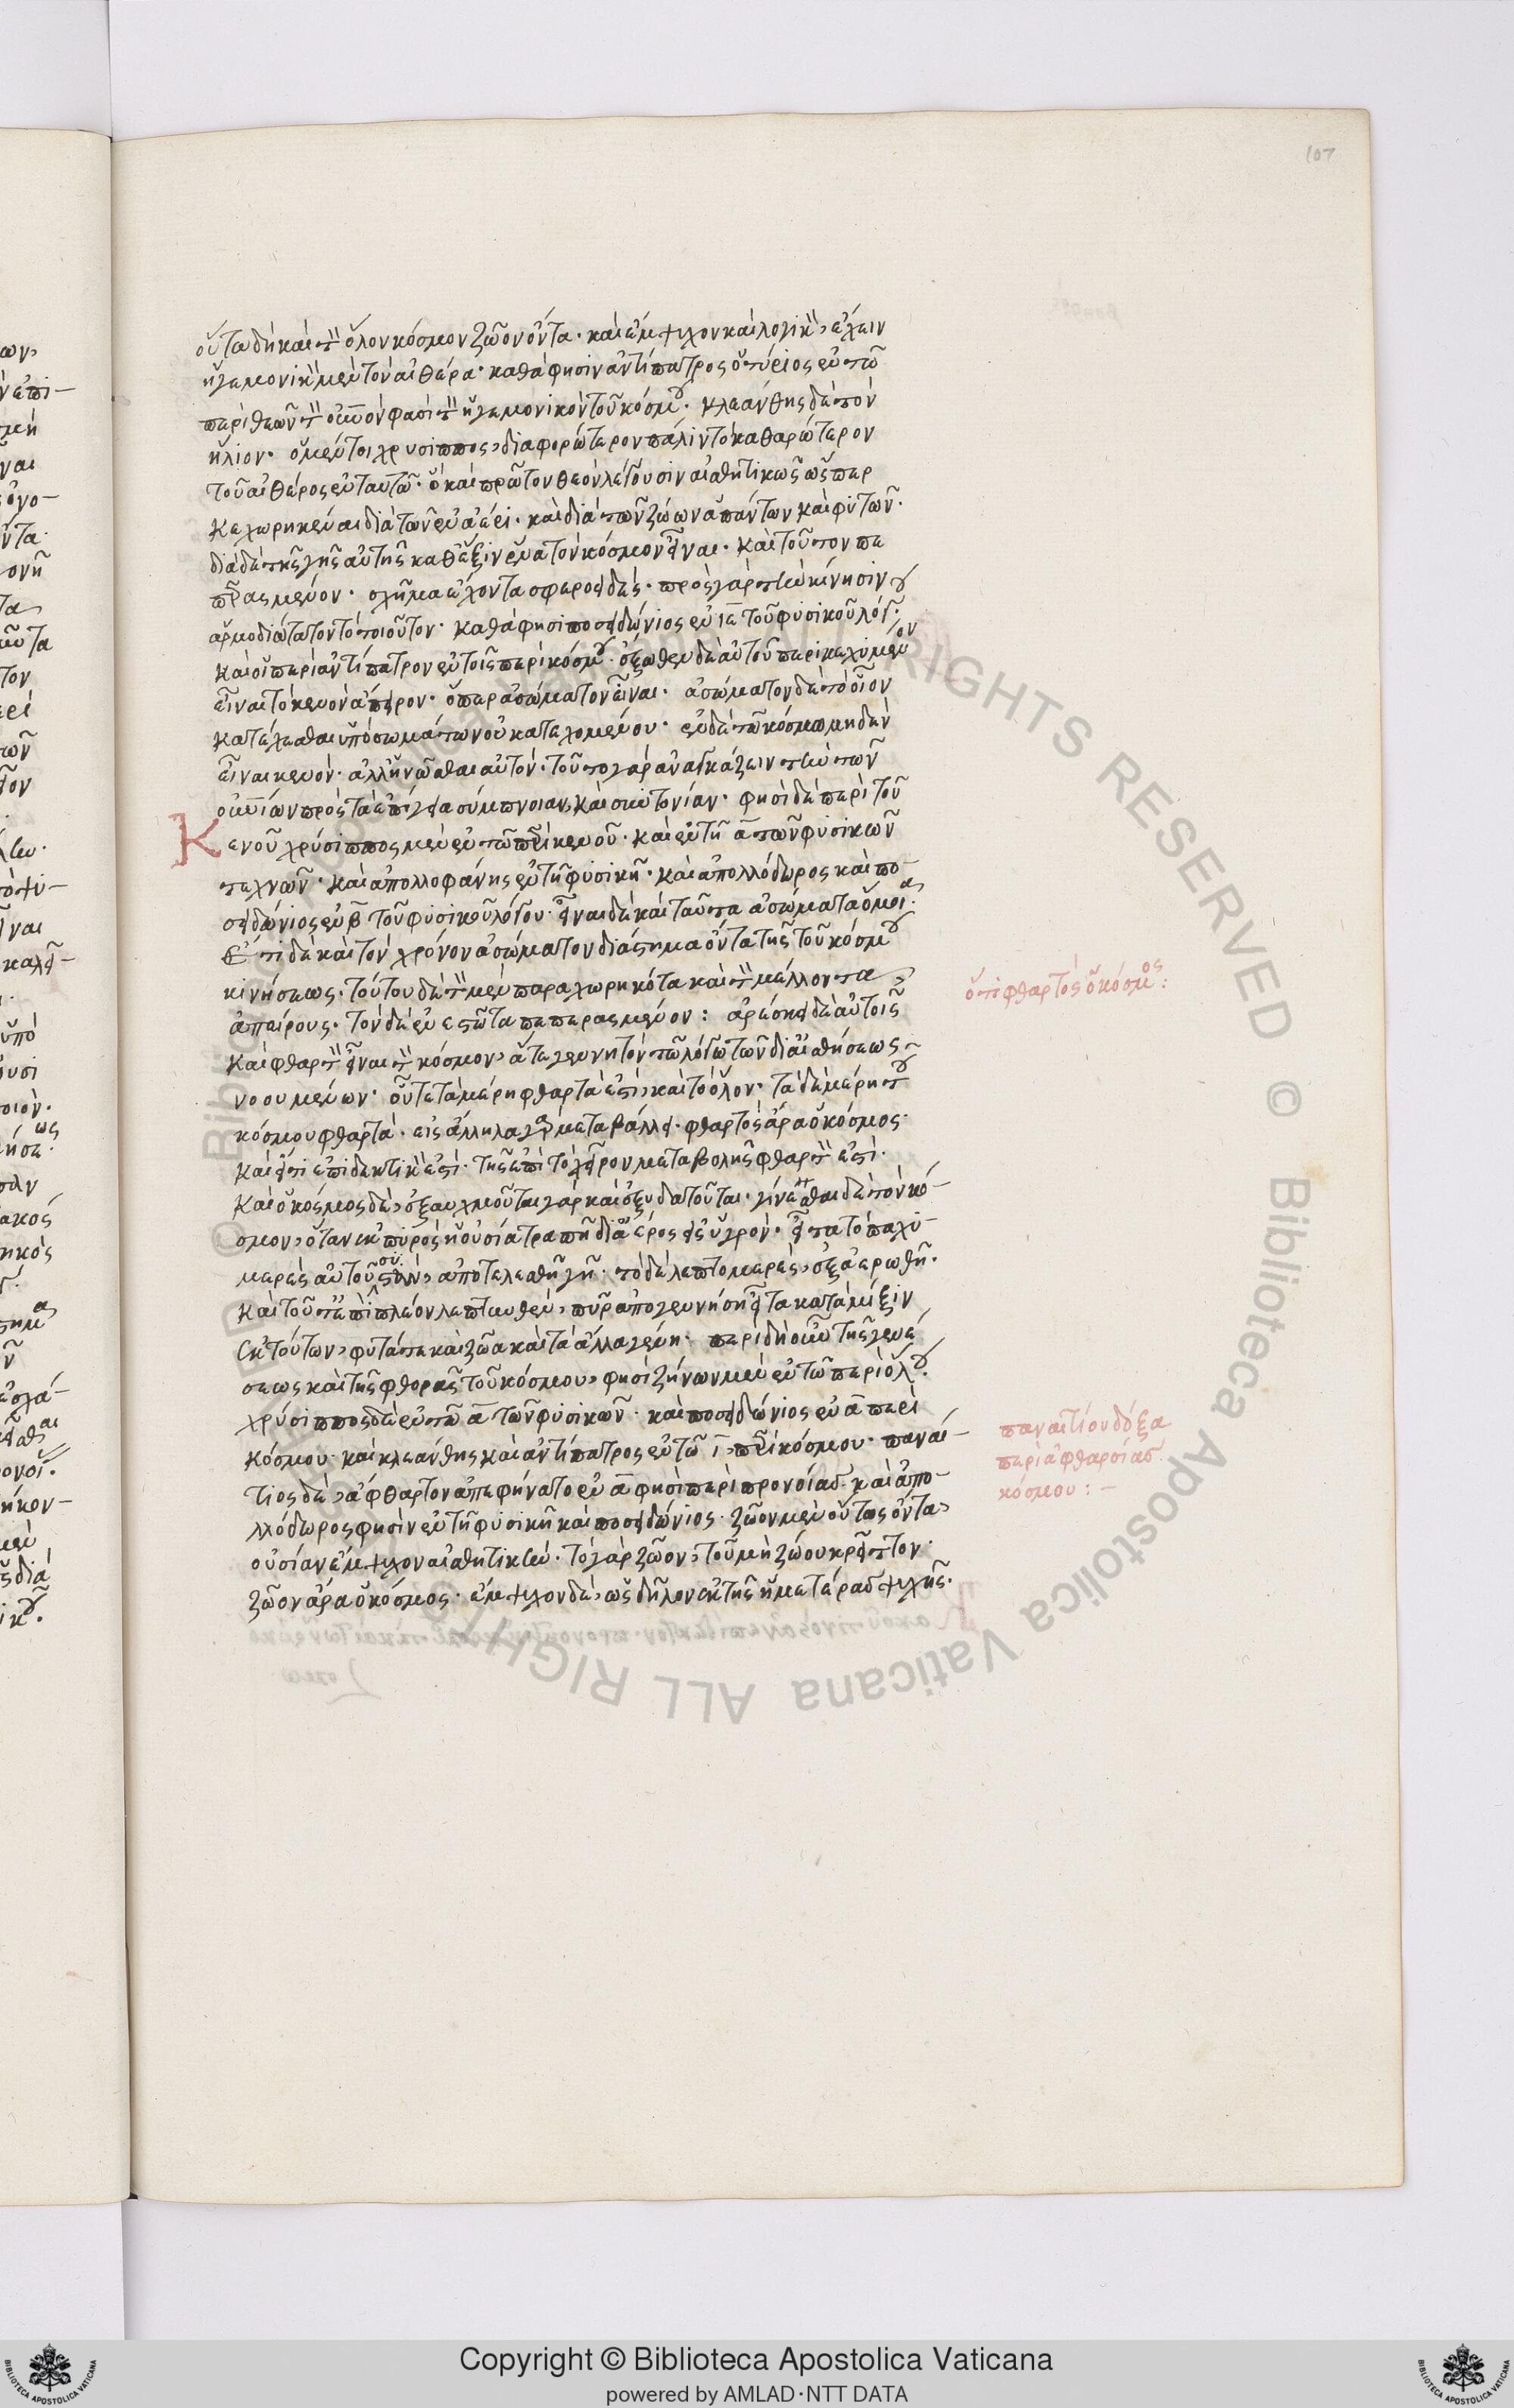 οὕτω δὴ καὶ τὸν ὅλον κόσμον ζῶον ὄντα· καὶ ἔμψυχον καὶ λογικὸν, ἔχειν
ἡγεμονικὸν μὲν τὸν αἰθέρα· καθά φησιν ἀντίπατρος ὁ τύριος ἐν τῶ
περὶ θεῶν τὸν οὐνόν φασὶ τὸ ἡγεμονικὸν τοῦ κόσμου· κλεάνθης δὲ τὸν
ἥλιον· ὁ μέντοι χρύσιππος, διαφορώτερον πάλιν τὸ καθαρώτερον
τοῦ αἰθέρος ἐν ταυτῶ· ὃ καὶ πρῶτον θεὸν λέγουσιν αἰσθητικῶς ὥσπερ
κεχωρηκέναι διὰ τῶν ἐν ἀέρι· καὶ διὰ τῶν ζώων ἁπάντων καὶ φυτῶν·
διὰ δὲ τῆς γῆς αὐτῆς καθ' ἕξιν ἕνα τὸν κόσμον εἶναι· καὶ τοῦτον πε
πρασμένον· σχῆμα ἔχοντα σφεροειδές· πρὸς γὰρ τὴν κίνησιν
ἁρμοδιώτατον τὸ τοιοῦτον· καθά φησι ποσειδώνιος ἐν ιε τοῦ φυσικοῦ λόγου·
καὶ οἱ περὶ ἀντίπατρον ἐν τοῖς περὶ κόσμου· ἔξωθεν δὲ αὐτοῦ περικεχυμένον
εἶναι τὸ κενὸν ἄπειρον· ὅπερ ἀσώματον εἶναι· ἀσώματον δὲ τὸ οἷον
κατέχεσθαι ὑπὸ σωμάτων οὐ κατεχόμενον· ἐν δὲ τῶ κόσμω μηδὲν
εἶναι κενόν· ἀλλ' ἡνῶσθαι αὐτόν· τοῦτο γὰρ ἀναγκάζειν τὴν τῶν
οὐνίων πρὸς τὰ ἐπίγεια σύμπνοιαν, καὶ συντονίαν· φησὶ δὲ περὶ τοῦ
Κενοῦ χρύσιππος μὲν ἐν τῶ περὶ κενοῦ· καὶ ἐν τῆ α τῶν φυσικῶν
τεχνῶν· καὶ ἀπολλοφάνης ἐν τῆ φυσικῆ· καὶ ἀπολλόδωρος καὶ πο-
σειδώνιος ἐν β τοῦ φυσικοῦ λόγου· εἶναι δὲ καὶ ταῦτα ἀσώματα ὅμοια·
Ἔτι δὲ καὶ τὸν χρόνον ἀσώματον διάστημα ὄντα τῆς τοῦ κόσμου
κινήσεως· τούτου δὲ τὸν μὲν παραχωρηκότα καὶ τὸν μέλλοντα
ἀπείρους· τὸν δὲ ἐνεστῶτα πεπερασμένον: ἀρέσκει δὲ αὐτοῖς
ὅτι φθαρτὸς ὁ κόσμος:
καὶ φθαρτὸν εἶναι τὸν κόσμον, ἅτε γεννητὸν τῶ λόγω τῶν δι' αἰσθήσεως
νοουμένων· οὗ τε τὰ μέρη φθαρτὰ ἐστὶ, καὶ τὸ ὅλον· τὰ δὲ μέρη τοῦ
κόσμου φθαρτά· εἰς ἄλληλα γὰρ μεταβάλλει· φθαρτὸς ἄρα ὁ κόσμος·
καὶ εἴ τι ἐπιδεκτικόν ἐστι· τῆς ἐπὶ τὸ χεῖρον μεταβολῆς φθαρτὸν ἐστὶ·
καὶ ὁ κόσμος δὲ, ἐξαυχμοῦται γὰρ καὶ ἐξυδατοῦται· γίνεσθαι δὲ τὸν κό-
σμον, ὅταν ἐκ πυρὸς ἡ οὐσία τραπῆ δι' ἀέρος εἰς ὑγρόν· εἶτα τὸ παχυ-
μερὲς αὐτοῦ συστὰν, ἀποτελεσθῆ γῆ· τὸ δὲ λεπτομερὲς, ἐξαερωθῆ·
καὶ τοῦτ' ἐπὶ πλέον λεπτυνθὲν, πῦρ ἀπογεννήση εἶτα κατὰ μίξιν
ἐκ τούτων, φυτά τε καὶ ζῶα καὶ τὰ ἄλλα γένη· περὶ δὴ οὖν τῆς γενέ
σεως καὶ τῆς φθορᾶς τοῦ κόσμου, φησὶ ζήνων μὲν ἐν τῶ περὶ ὅλου·
χρύσιππος δὲ ἐν τῶ α τῶν φυσικῶν· καὶ ποσειδώνιος ἐν α περὶ
κόσμου· καὶ κλεάνθης καὶ ἀντίπατρος ἐν τῶ ι, περὶ κόσμου· παναί-
τιος δὲ, ἄφθαρτον ἀπεφήνατο ἐν α φησὶ περὶ προνοίας· καὶ ἀπο-
παναιτίου δόξα
περὶ ἀφθαρσίας
κόσμου:–
λλόδωρος φησὶν ἐν τῆ φυσικῆ καὶ ποσειδώνιος· ζῶον μὲν οὕτως ὄντα,
οὐσίαν ἔμψυχον αἰσθητικήν· τὸ γὰρ ζῶον, τοῦ μὴ ζώου κρεῖττον·
ζῶον ἄρα ὁ κόσμος· ἔμψυχον δὲ, ὡς δῆλον ἐκ τῆς ἡμετέρας ψυχῆς·
107
© Biblioteca Apostolica Vaticana ALL RIGHTS RESERVED
Copyright © Biblioteca Apostolica Vaticana
powered by AMLAD·NTT DATA